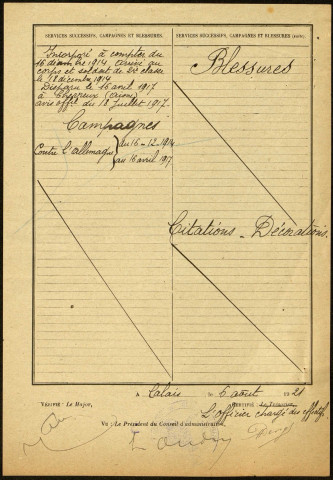 SERVICES SUCCESSIFS, CAMPAGNES ET BLESSURES.
Incorporé à compter du
16 décembre 1914 arrivé au
corps et soldat de 2e classe
le 18 décembre 1914
Disparu le 16 avril 1917
à (Aisne)
avis offel du 18 Juillet 1917.
Campagnes
Contre l'allemagne { du 16-12-1914
au 16 avril 1917
SERVICES SUCCESSIFS, CAMPAGNES ET BLESSURES (suite).
Blessures
Citations - Décorations.
A Calais le 6 août 1921
VÉRIFIÉ : Le Major,
CERTIFIÉ : Le Trésorier,
L'officier chargé des effectifs
VU : Le Président du Conseil d'administration,